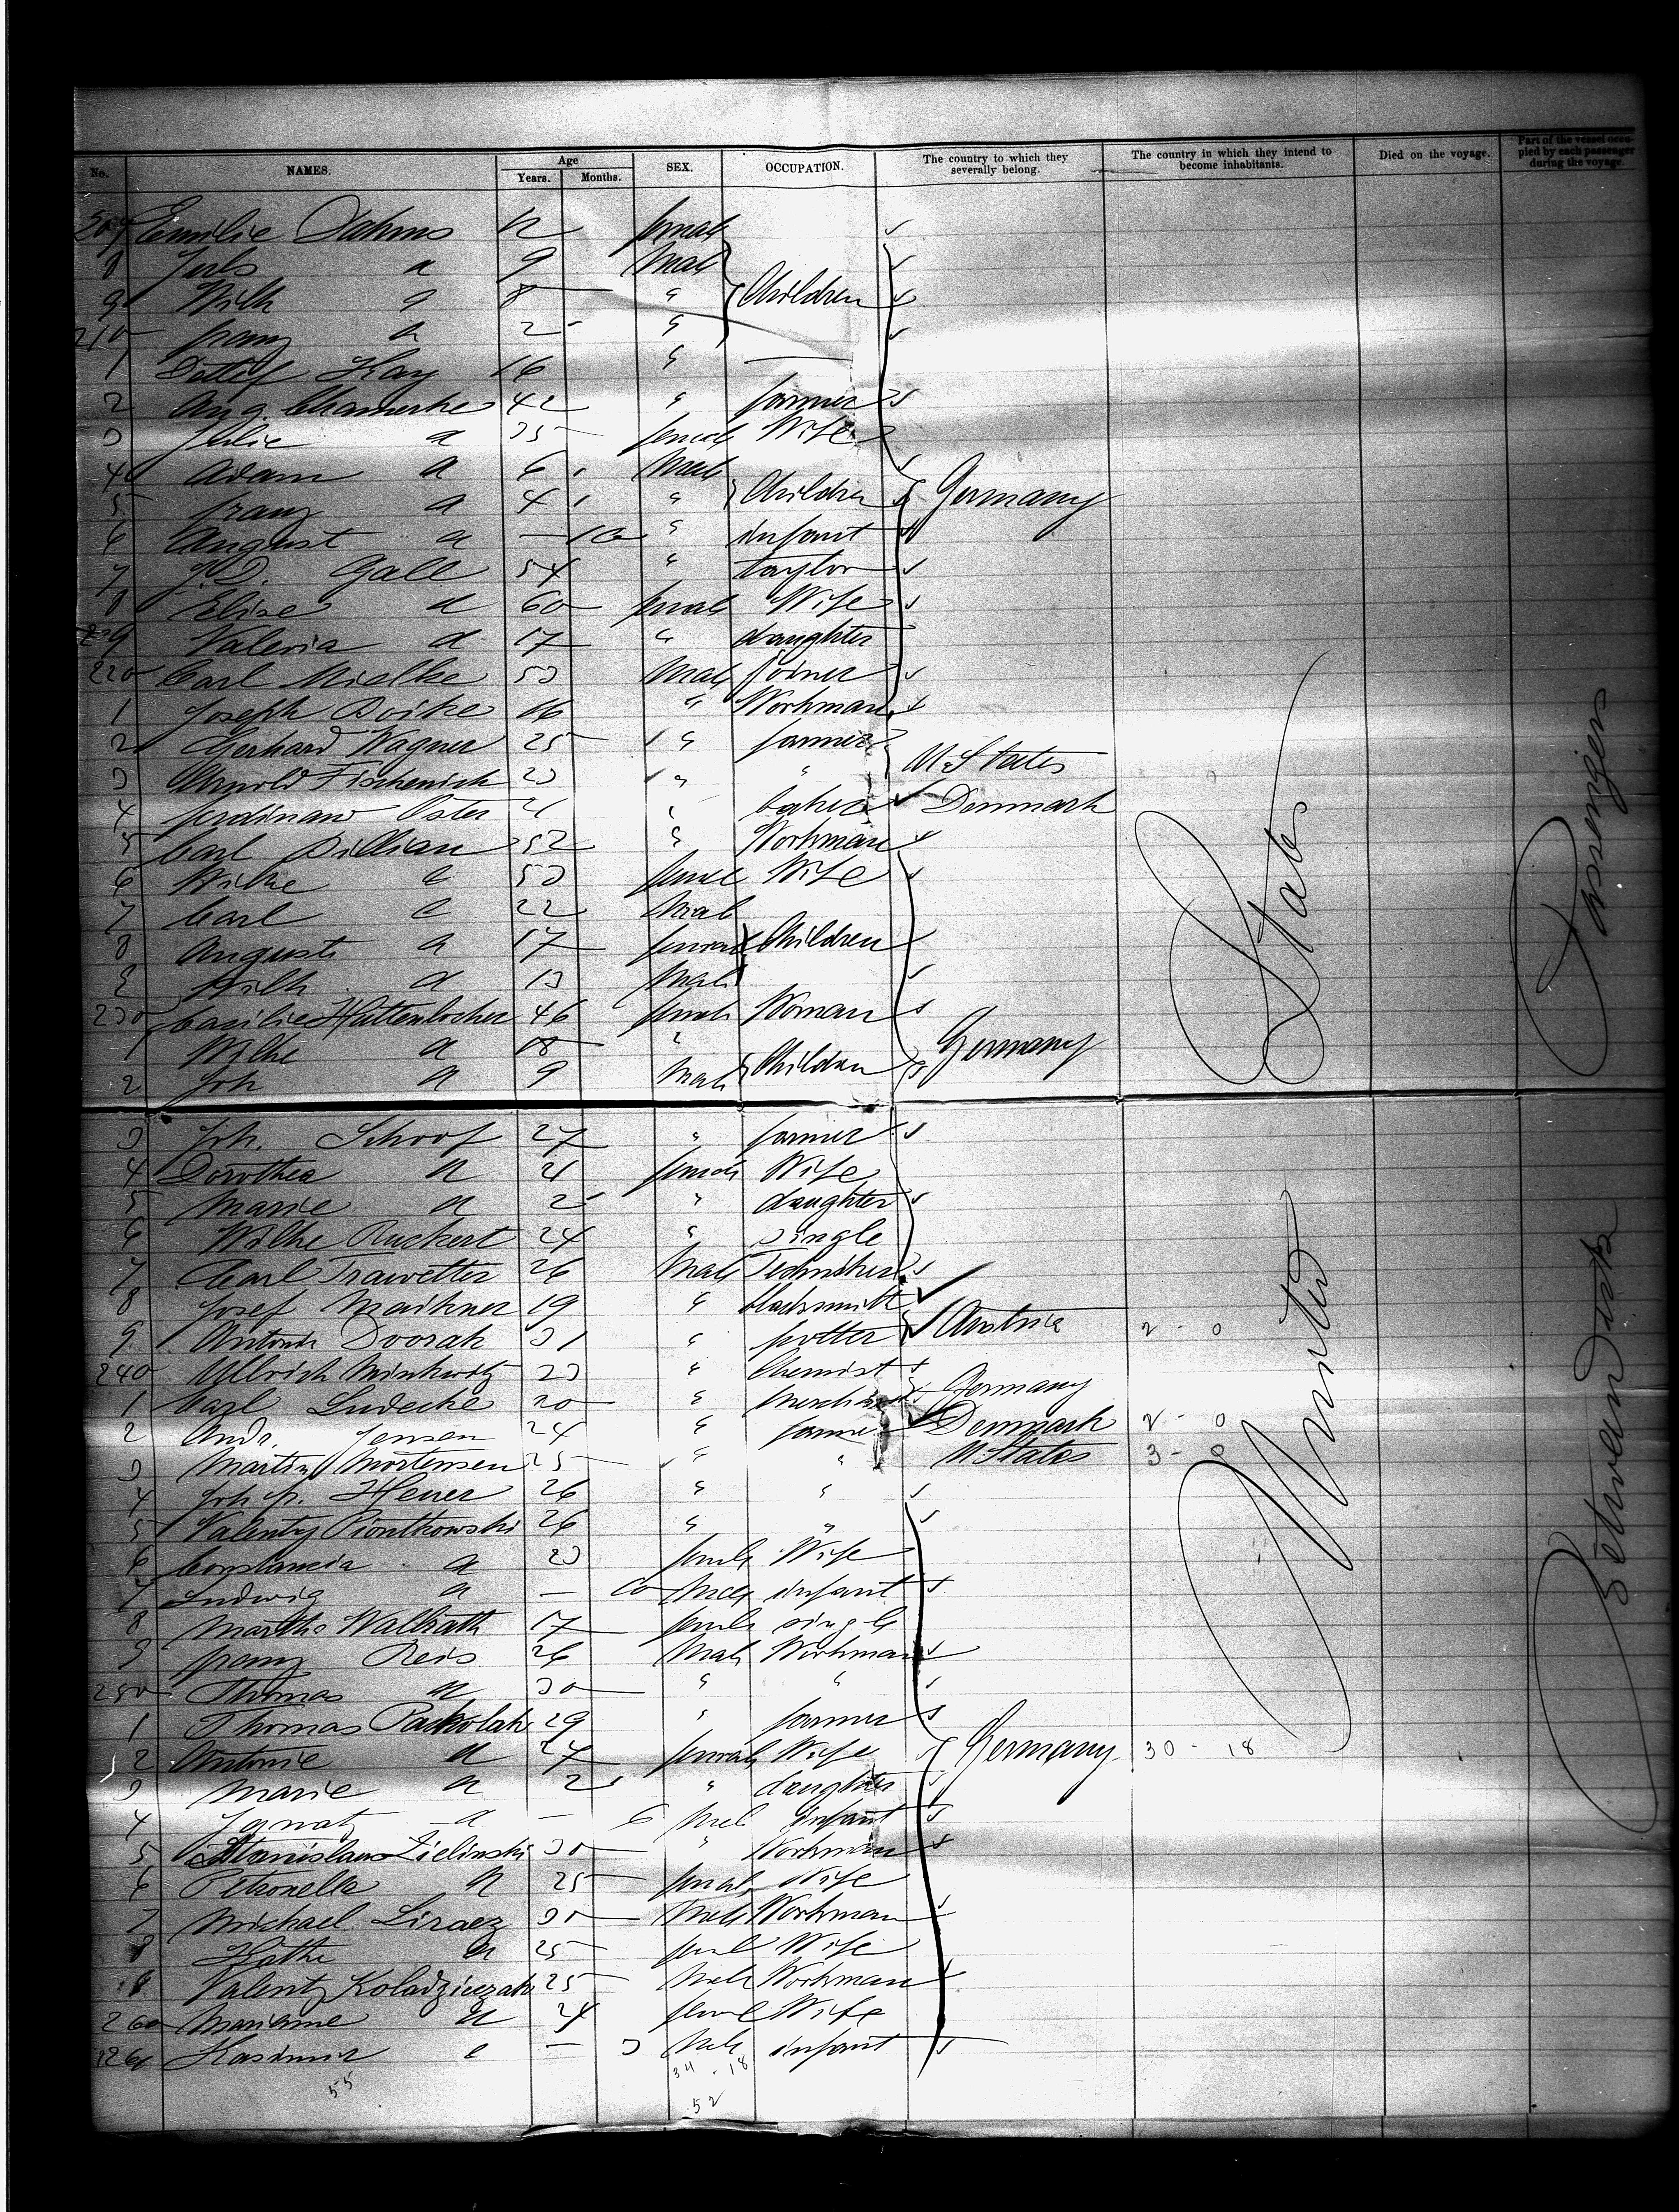 No. NAMES. Age Years. Months. SEX. OCCUPATION. The country to which they severally belong. The country in which they intend to become inhabitants. Died on the voyage. Part of the vessel occupied by each passenger during the voyage.
207 Emilie Dahms 12 female
8 Juls a 9 Male
9 Wilh a 8 " Children
210 franz a 2 "
1 Detlef Kay 16 " —
2 Aug. 42 " farmer
3 Julie a 35 female Wife
4 Adam a 6 Male
5 franz a 4 " Children Germany
6 August a — 10 " infant
7 J.D. Gall 54 " taylor
8 Elise a 60 female Wife
219 Valeria a 17 " daughter
220 Carl Mielke 53 Male joiner
1 Joseph 16 " Workman
2 Gerhard Wagner 25 " farmer
3 Arnold Fischenich 23 " " U. States
4 ferdinand Oster 21 " baker Denmark
5 Carl Dillian 52 " Workman
6 Wilhe a 53 female Wife
7 Carl a 22 Male
8 Auguste a 17 female Children
9 Wilh a 13 Male
230 Casilie Huttenlocher 46 female Woman
1 Wilhe a 18 "
2 Joh a 9 Male Children Germany
3 Joh. Schoof 27 " farmer
4 Dorothea a 21 female Wife
5 Marie a 2 " daughter
6 Wilhe Ruckert 24 " single
7 Carl Trawetter 26 Male Techniker
8 Josef Maikner 19 " blacksmith
9 Antonin Dvorak 31 " potter Austria 2 - 0
240 Ullrich Minkwitz 23 " Chemist
1 Carl Ludecke 20 " Germany
2 Andr. Jensen 24 " farmer Denmark 2 - 0
3 Martin Mortensen 25 " " U States 3 - 0
4 Joh. fr. Heuer 26 " "
5 Valenty Piontkowski 26 " "
6 Constancia a 23 female Wife
7 Ludwig a — 10 Male infant
8 Martha Wallrath 17 female single
9 franz Reis 26 Male Workman
250 Thomas a 30 " "
1 Thomas Packolak 29 " farmer
2 Antonie a 27 female Wife Germany 30 - 18
3 Marie a 2 " daughter
4 Ignatz a — 6 Male infant
5 Stanislaus Zielinski 30 " Workman
6 Petronella a 25 female Wife
7 Michael 30 Male Workman
8 Käthe a 25 female Wife
9 Valenty Koladzieczak 25 Male Workman
260 Marianne a 24 female Wife
261 Kasimir a — 3 Male infant
55
34 - 18
52
United States
Between deck Passengers